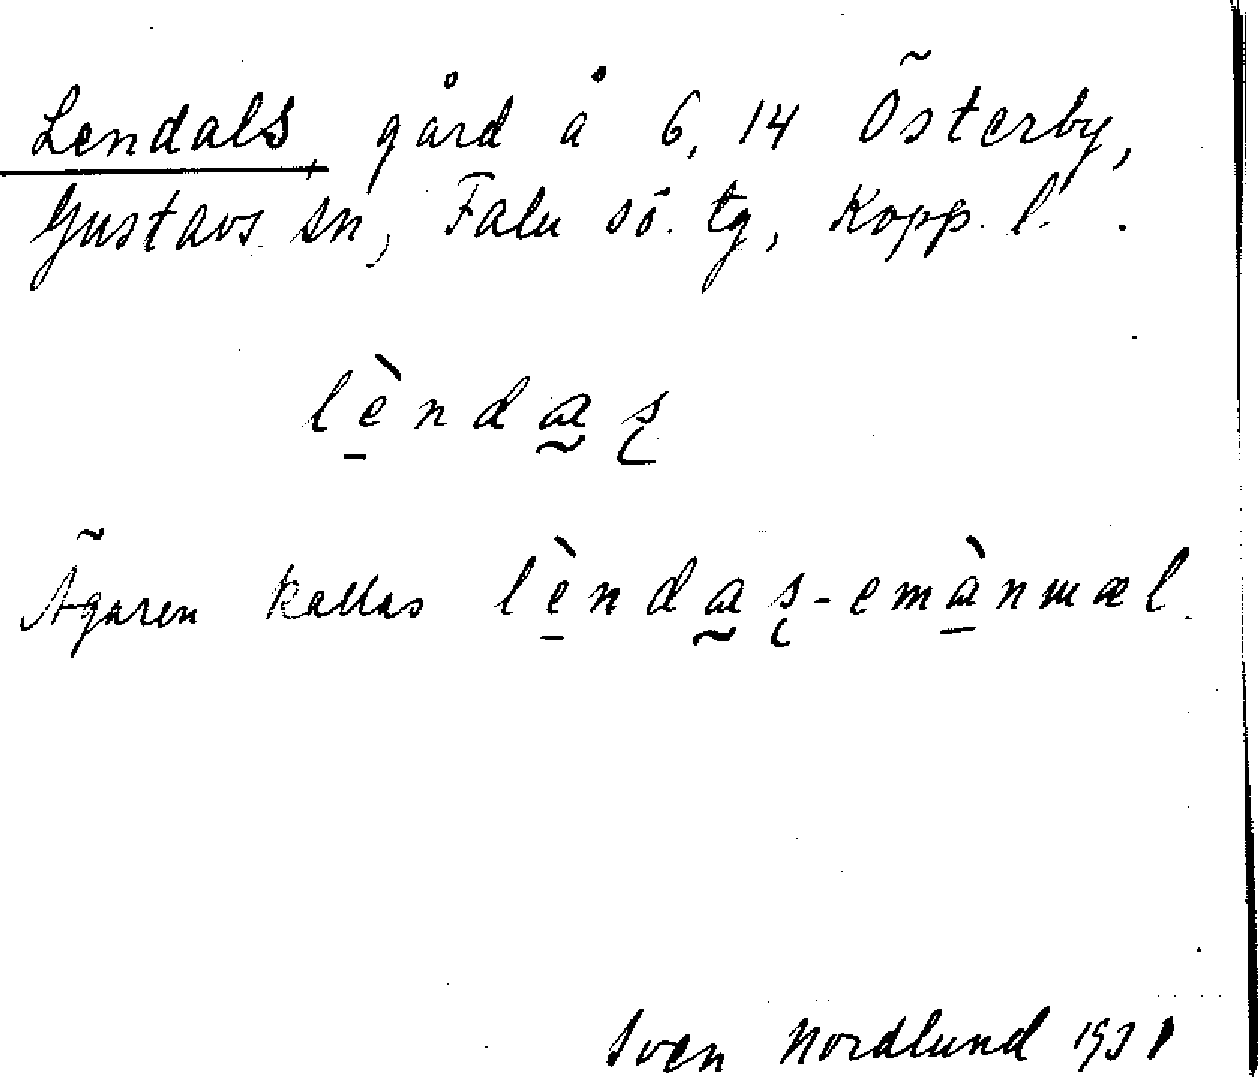 Lendals, gård å 6, 14 Österby,
Gustavs sn, Falu sö. tg, Kopp. l.
lèndas
Ägaren kallas lèndas-emànnæl.
Sven Nordlund 1931